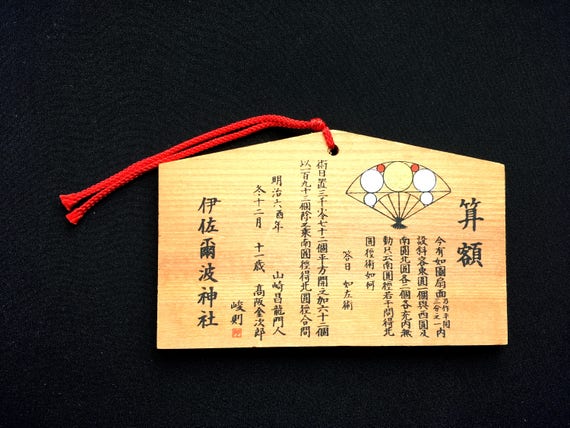 算額
今有如圖扇面乃作平圓三分之一内
設斜容東圓一個與西圓及
南圓北圓各二個各充内無
動只云南圓徑若干問得北
圓徑術如何
答曰 如左術
術曰置三千令七十二個平方開之加六十二個
以一百九十三個除之乘南圓徑得北圓徑合問
明治六酉年 山崎昌龍門人
冬・十二月 十一歳 高阪金次郎
峻則
伊佐爾波神社